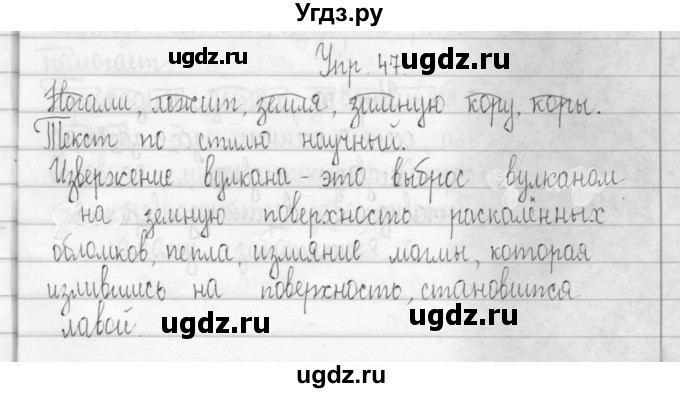 Угдз.ру
ugdz.ru Упр. 47. ugdz.ru
Ногами, лежит, земля, земную кору, коры.
Текст по стилю научный.
Извержение вулкана - это выброс вулканом
на земную поверхность раскалённых
обломков, пепла, излияние магмы, которая
излившись на поверхность, становится
лавой. ugdz.ru ugdz.ru
ugdz.ru